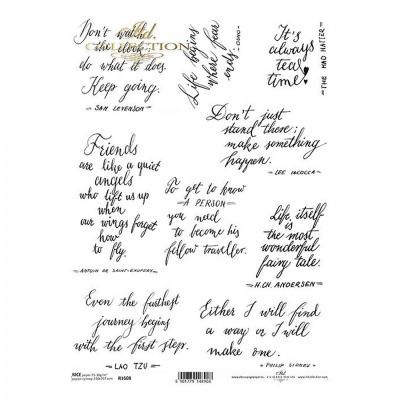 Don't watch
the clock;
do what it does.
Keep going.
- SAM LEVENSON -
itd.
COLLECTION
Life begins
where fear
ends.
- OSHO -
It's
always
tea
time!
- THE MAD HATTER -
Don't just
stand there;
make something
happen.
- LEE IACOCCA
Friends
are like a quiet
angels
who lift us up
when
our wings forget
how
to fly.
- ANTOIN DE SAINT-EXUPERY -
To get to know
A PERSON
you need
to become his
fellow traveller.
Life itself
is the most
wonderful
fairy tale.
- H.CH. ANDERSEN -
Even the farthest
journey begins
with the first step.
- LAO TZU -
Either I will find
a way or I will
make one.
- PHILIP SIDNEY -
RICE
R1608
5 901779 148906
itd.
COLLECTION